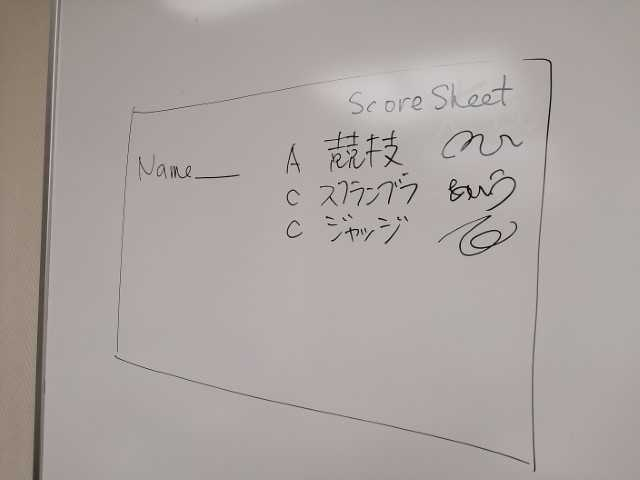 Score Sheet
Name
A 競技
C スクランブラ
C ジャッジ